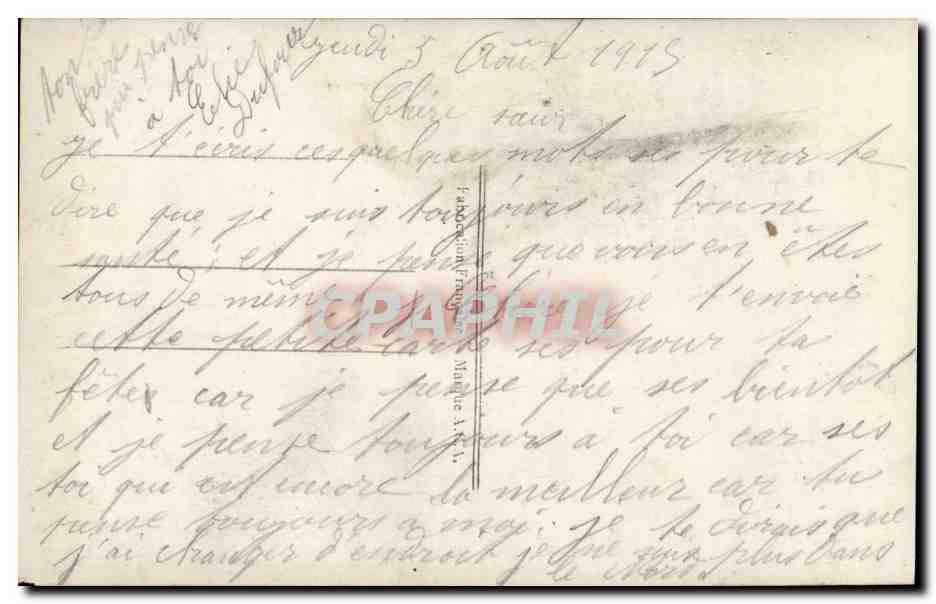 jeudi 5 Août 1915
Chère sœur
je t'écris ces quelques mots ses pour te
dire que je suis toujours en bonne
santé, et je pense que vous en êtes
tous de même je t'envoie
cette petite carte ses pour ta
fête car je pense que ses bientôt
et je pense toujours à toi car ses
toi qui est encore la meilleur car tu
pense toujours a moi. je te dirais que
j'ai changer d'endroit je ne suis plus dans
le Nord
ton
frère
qui pense
à toi
Elie
Dufour
Fabrication Française - Marque A.
CPAPHIL